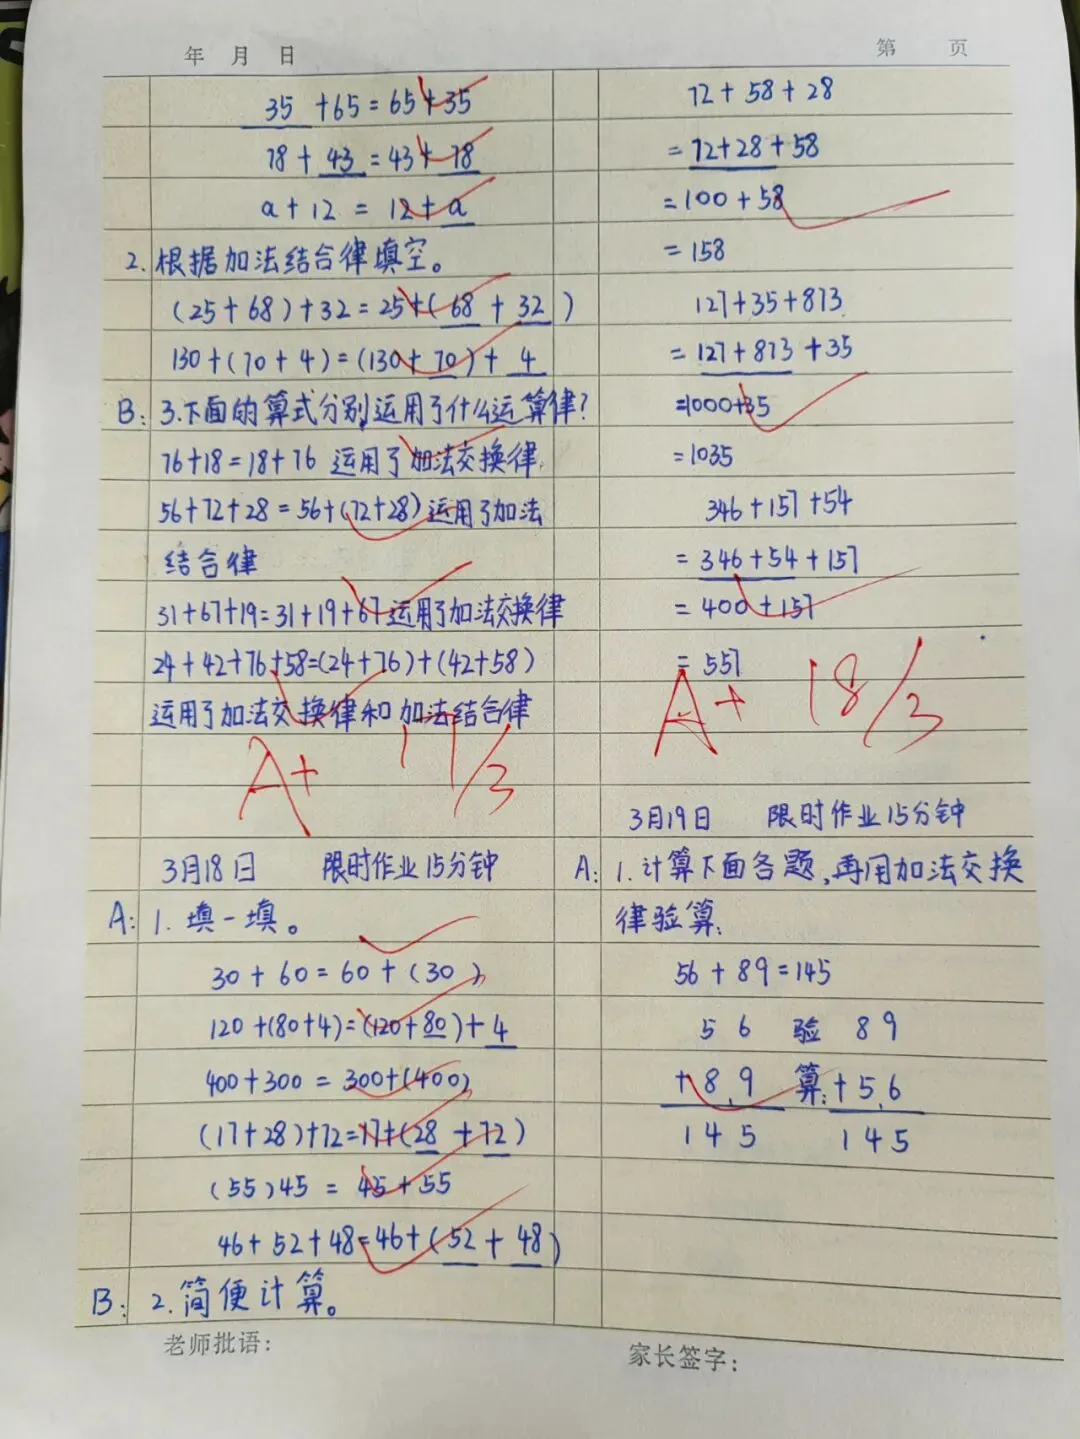 年 月 日
第 页
35 +65=65+35
78+43=43+78
a+12=12+a
2.根据加法结合律填空。
(25+68)+32=25+(68+32)
130+(70+4)=(130+70)+4
B:3.下面的算式分别运用了什么运算律?
76+18=18+76 运用了加法交换律.
56+72+28=56+(72+28)运用了加法
结合律
31+67+19=31+19+67运用了加法交换律
24+42+76+58=(24+76)+(42+58)
运用了加法交换律和加法结合律
A+ 17/3
3月18日 限时作业15分钟
A:1.填一填。
30+60=60+(30)
120+(80+4)=(120+80)+4
400+300=300+(400)
(17+28)+72=17+(28+72)
(55)45=45+55
46+52+48=46+(52+48)
B:2.简便计算。
72+58+28
=72+28+58
=100+58
=158
127+35+873
=127+873+35
=1000+35
=1035
346+157+54
=346+54+157
=400+157
=557
A+ 18/3
3月19日 限时作业15分钟
A:1.计算下面各题,再用加法交换
律验算:
56+89=145
5 6 验 8 9
+8.9 算:+5.6
1 4 5 1 4 5
老师批语:
家长签字: